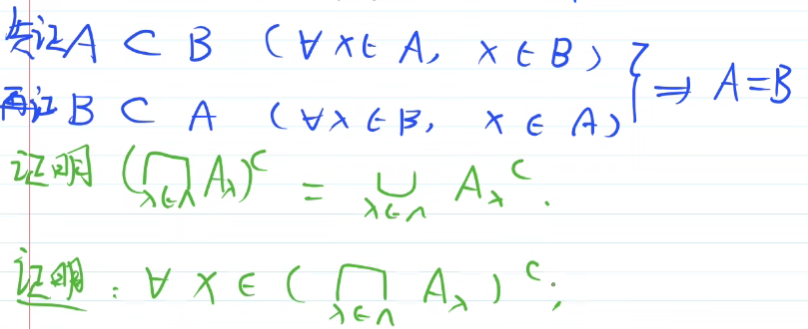 先证 A ⊂ B (∀x∈A, x∈B)
再证 B ⊂ A (∀x∈B, x∈A) } ⇒ A=B
证明 (⋂_{λ∈Λ} A_λ)^c = ⋃_{λ∈Λ} A_λ^c.
证明: ∀ x ∈ (⋂_{λ∈Λ} A_λ)^c;